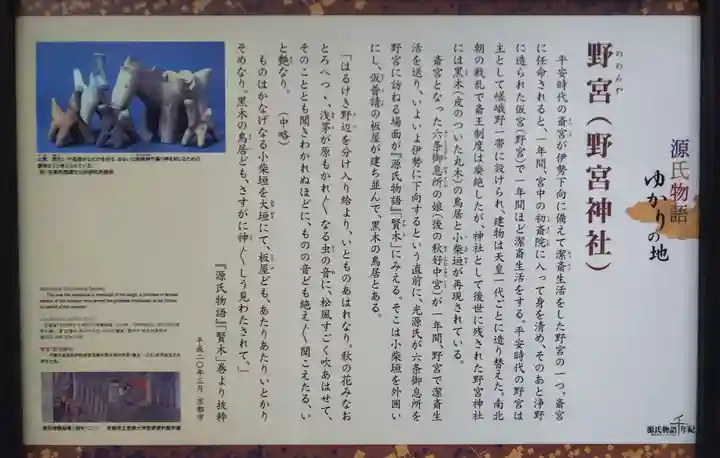 源氏物語
ゆかりの地
野宮（野宮神社）
ののみや
平安時代の斎宮が伊勢下向に備えて潔斎生活をした野宮の一つ。斎宮
に任命されると、一年間、宮中の初斎院に入って身を清め、そのあと浄野
に造られた仮宮（野宮）で一年間ほど潔斎生活をする。平安時代の野宮は
主として嵯峨野一帯に設けられ、建物は天皇一代ごとに造り替えた。南北
朝の戦乱で斎王制度は廃絶したが、神社として後世に残された野宮神社
には黒木（皮のついた丸木）の鳥居と小柴垣が再現されている。
斎宮となった六条御息所の娘（後の秋好中宮）が一年間、野宮で潔斎生
活を送り、いよいよ伊勢に下向するという直前に、光源氏が六条御息所を
野宮に訪ねる場面が『源氏物語』「賢木」にみえる。そこは小柴垣を外囲い
にし、仮普請の板屋が建ち並んで、黒木の鳥居とある。
「はるけき野辺を分け入り給より、いとものあはれなり。秋の花みなお
とろへつゝ、浅茅が原もかれ〴〵なる虫の音に、松風すごく吹あはせて、
そのこととも聞きわかれぬほどに、ものの音ども絶え〴〵聞こえたる、い
と艶なり。　（中略）
ものはかなげなる小柴垣を大垣にて、板屋ども、あたりあたりいとかり
そめなり。黒木の鳥居ども、さすがに神〴〵しう見わたされて、」
『源氏物語』「賢木」巻より抜粋
平成二〇年三月　京都市
源氏物語千年紀